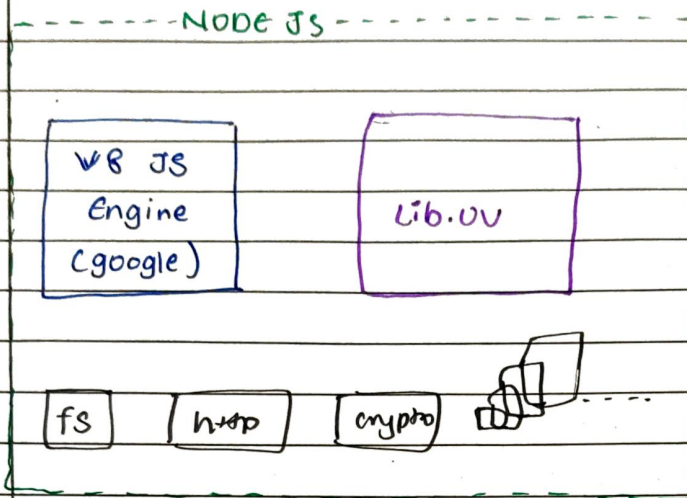 NODE JS
V8 JS
Engine
(google)
Lib.UV
fs
http
crypto